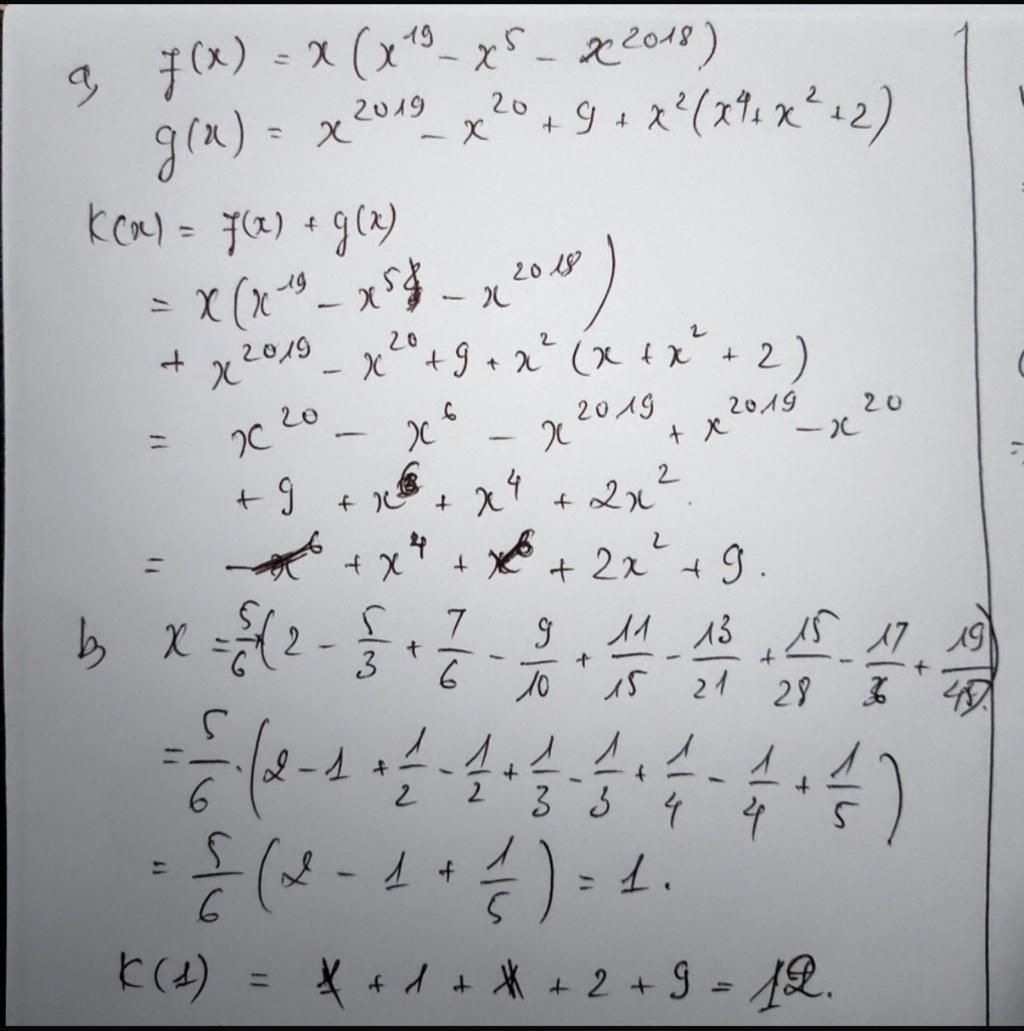 a, f(x) = x(x^19 - x^5 - x^2018)
g(x) = x^2019 - x^20 + 9 + x^2(x^4 + x^2 + 2)
K(x) = f(x) + g(x)
= x(x^19 - x^5 - x^2018)
+ x^2019 - x^20 + 9 + x^2(x + x^2 + 2)
= x^20 - x^6 - x^2019 + x^2019 - x^20
+ 9 + x^6 + x^4 + 2x^2.
= -x^6 + x^4 + x^6 + 2x^2 + 9.
b, x = 5/6(2 - 5/3 + 7/6 - 9/10 + 11/15 - 13/21 + 15/28 - 17/36 + 19/45)
= 5/6.(2 - 1 + 1/2 - 1/2 + 1/3 - 1/3 + 1/4 - 1/4 + 1/5)
= 5/6(2 - 1 + 1/5) = 1.
K(1) = + 1 + + 2 + 9 = 12.